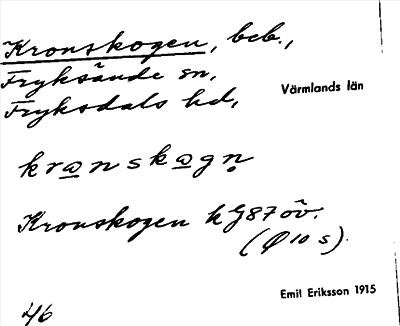 Kronskogen, beb.,
Fryksände sn,
Fryksdals hd,
Värmlands län
kranskagn̥
Kronskogen hG87öv.
(Ø10 s).
Emil Eriksson 1915
46